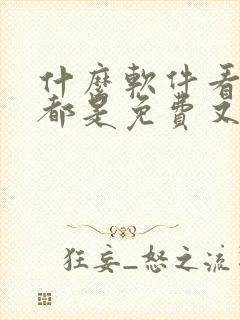 什麼軟件看
都是免費又
狂妄_怒之流